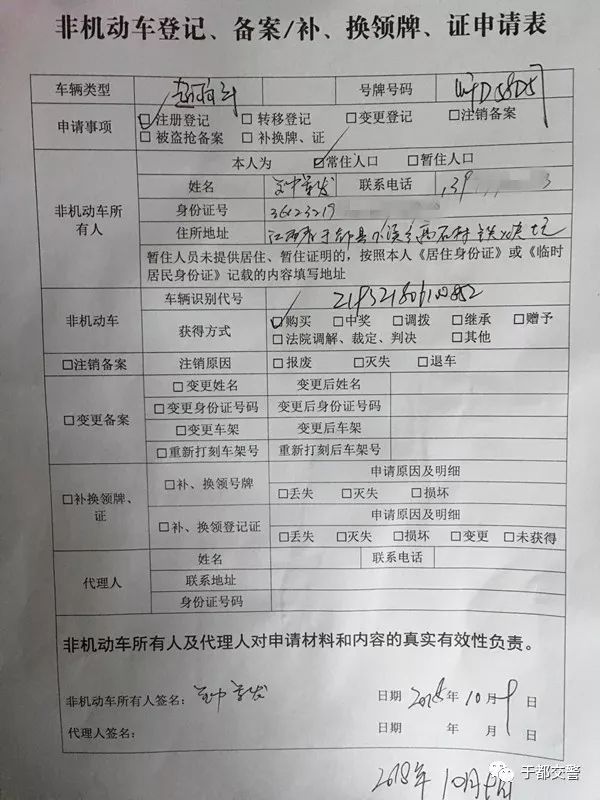 非机动车登记、备案/补、换领牌、证申请表
车辆类型 号牌号码
申请事项 □注册登记 □转移登记 □变更登记 □注销备案
□被盗抢备案 □补换牌、证
非机动车所有人
本人为 □常住人口 □暂住人口
姓名 联系电话
身份证号
住所地址 江西省于都县
暂住人员未提供居住、暂住证明的，按照本人《居住身份证》或《临时
居民身份证》记载的内容填写地址
非机动车 车辆识别代号
获得方式 □购买 □中奖 □调拨 □继承 □赠予
□法院调解、裁定、判决 □其他
□注销备案 注销原因 □报废 □灭失 □退车
□变更备案 □变更姓名 变更后姓名
□变更身份证号码 变更后身份证号码
□变更车架 变更后车架
□重新打刻车架号 重新打刻后车架号
□补换领牌、证
□补、换领号牌 申请原因及明细
□丢失 □灭失 □损坏
□补、换领登记证 申请原因及明细
□丢失 □灭失 □损坏 □变更 □未获得
代理人 姓名 联系电话
联系地址
身份证号码
非机动车所有人及代理人对申请材料和内容的真实有效性负责。
非机动车所有人签名： 日期 2018年10月9日
代理人签名： 日期 年 月 日
2018年10月
于都交警